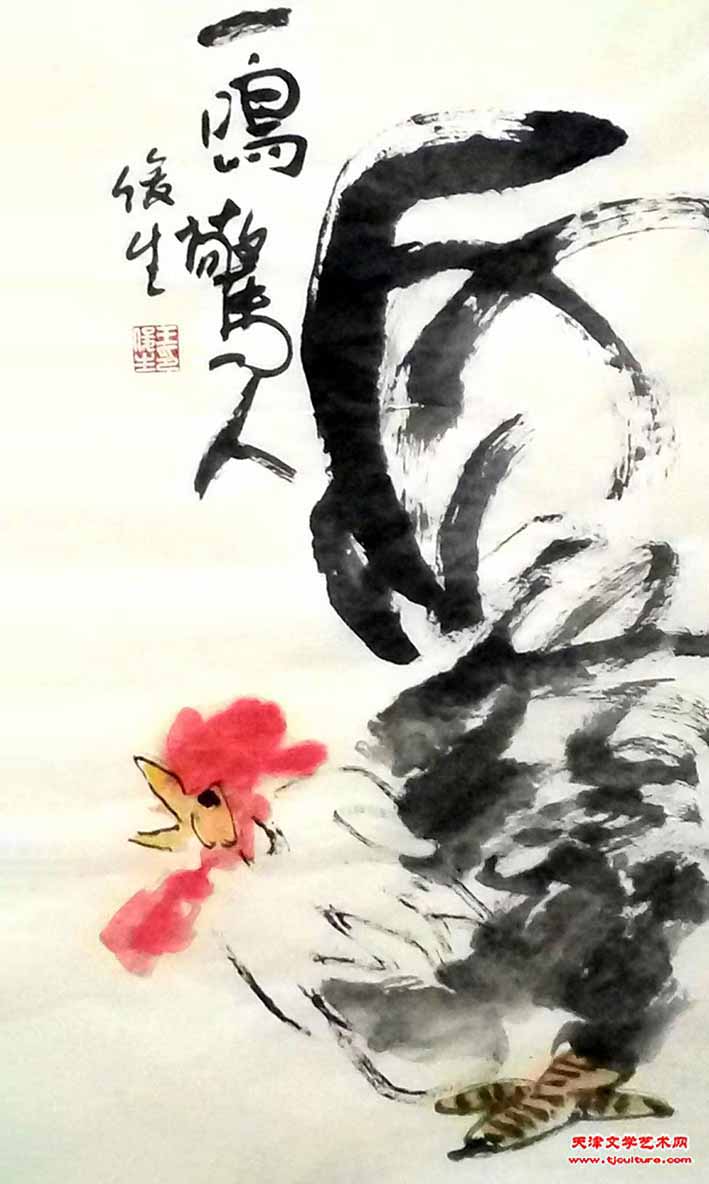 一鳴驚人
俊生
天津文学艺术网
www.tjculture.com